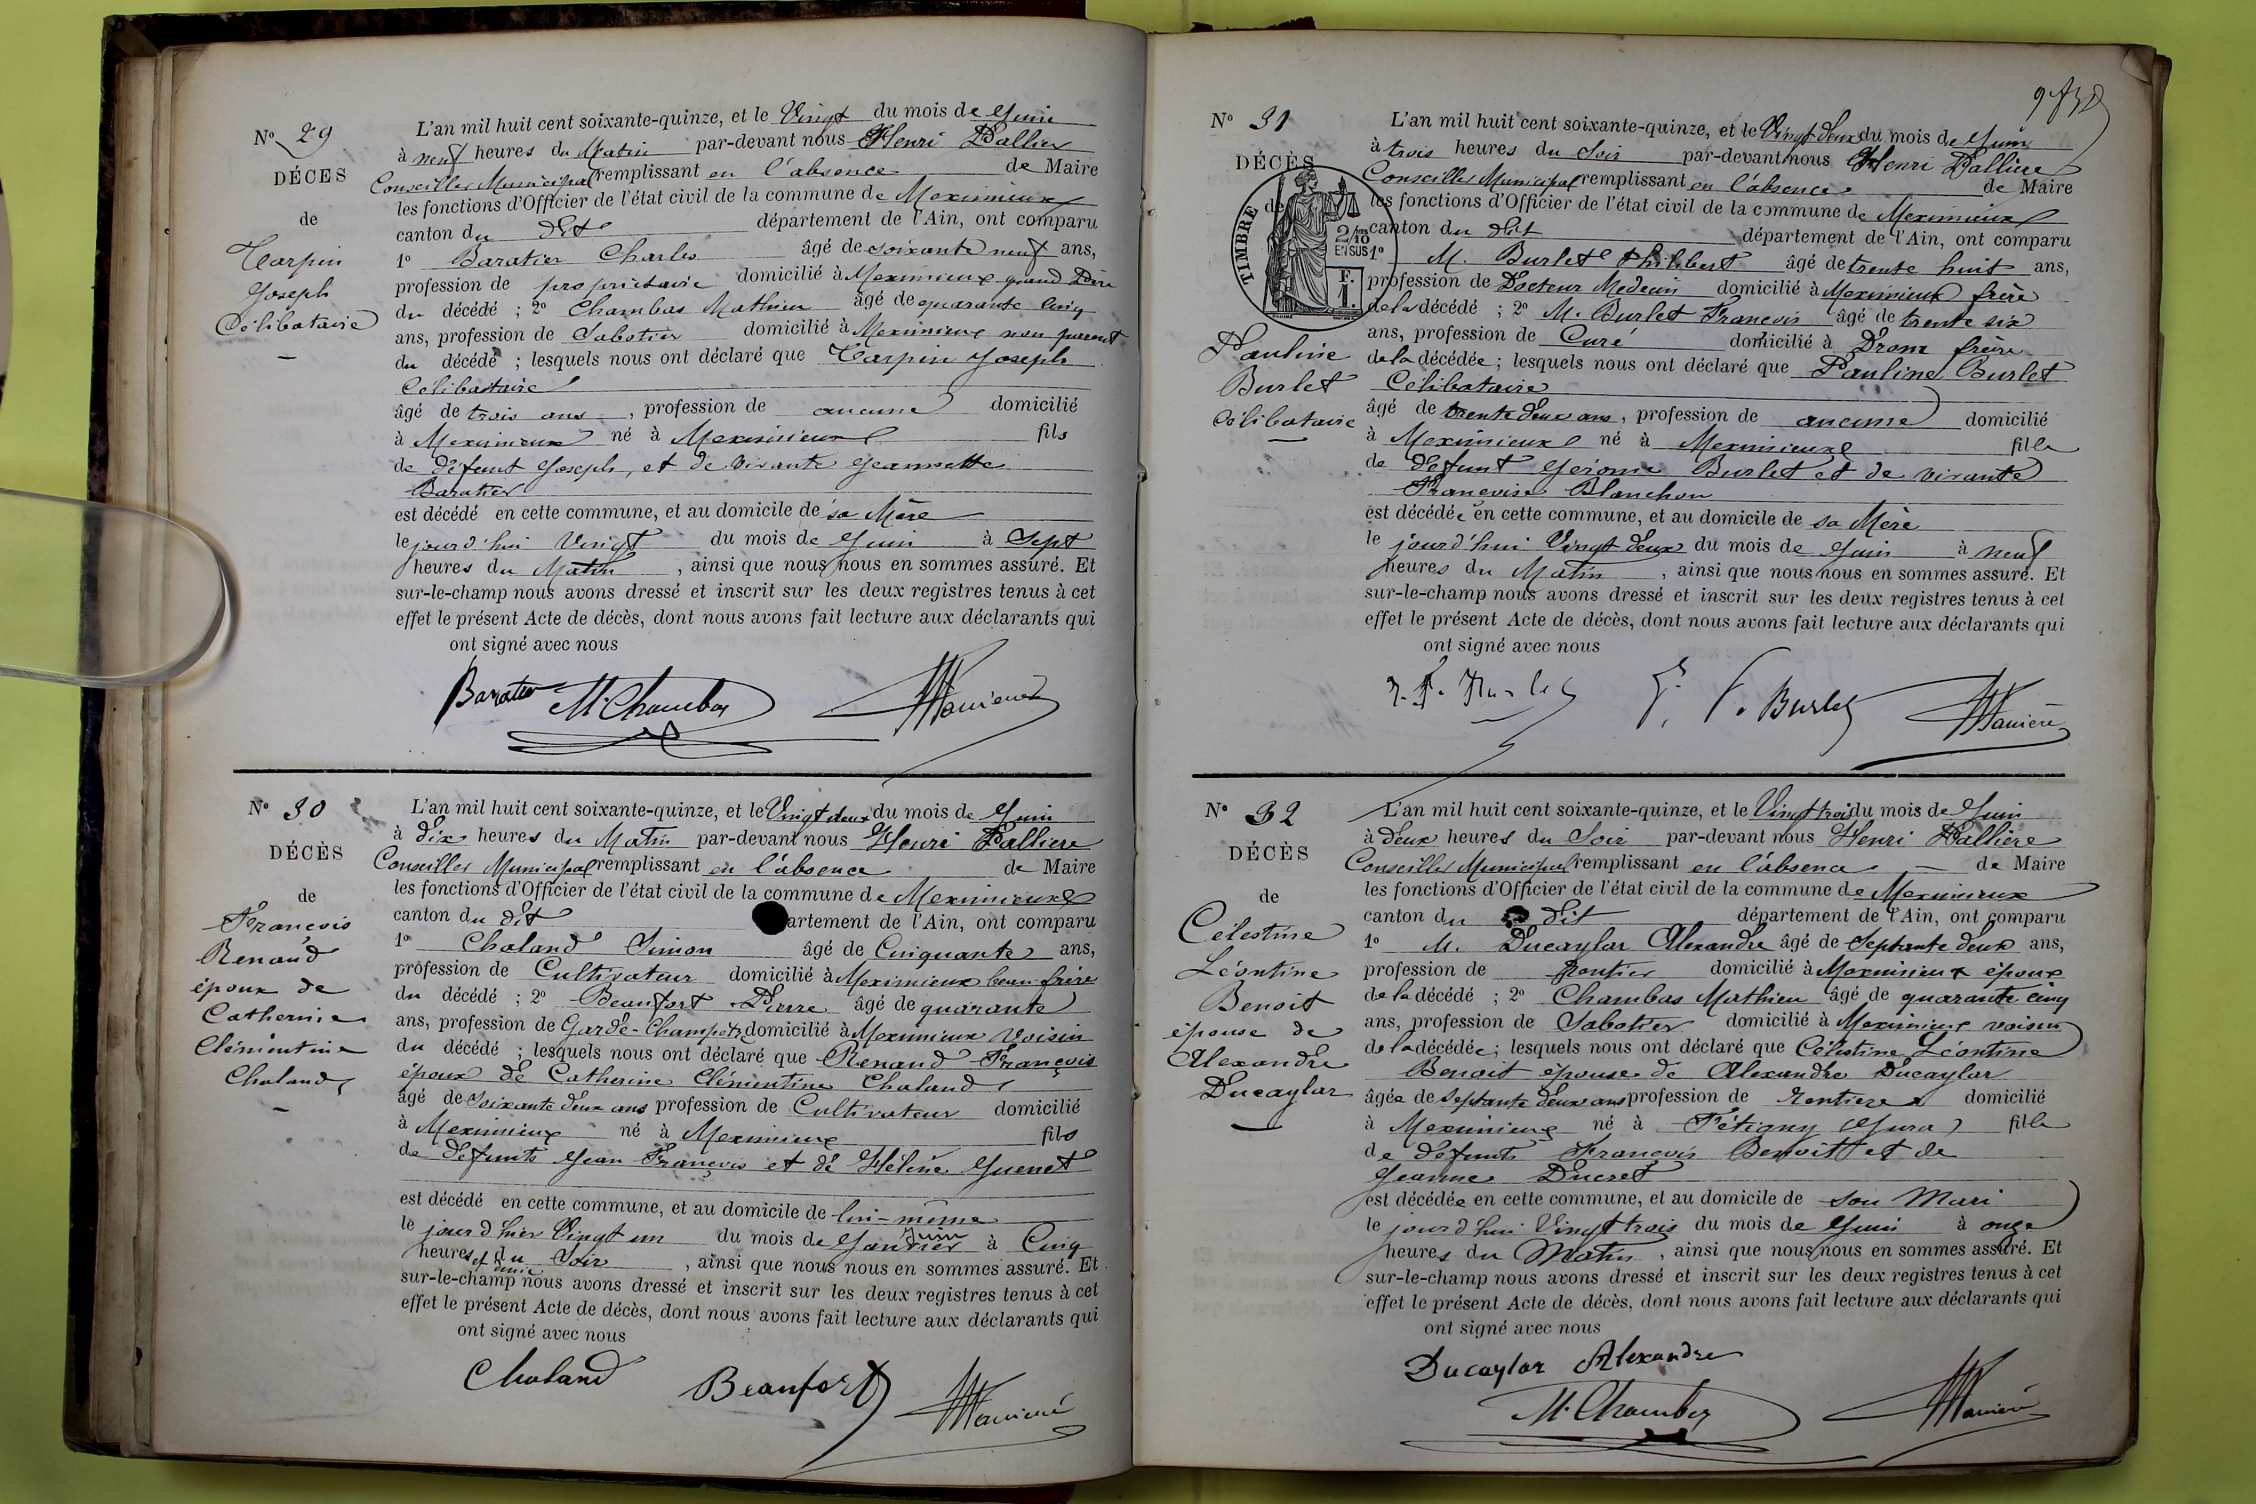 N° 29
DÉCES
de
Carpin
Joseph
Célibataire
L'an mil huit cent soixante-quinze, et le Vingt du mois de Juin
à neuf heures du Matin par-devant nous Henri Pallière
Conseiller Municipal remplissant en l'absence de Maire
les fonctions d'Officier de l'état civil de la commune de Meximieux
canton du dit département de l'Ain, ont comparu
1° Baratier Charles âgé de soixante neuf ans,
profession de propriétaire domicilié à Meximieux grand Père
du décédé ; 2° Chambas Mathieu âgé de quarante cinq
ans, profession de Sabotier domicilié à Meximieux non parent
du décédé ; lesquels nous ont déclaré que Carpin Joseph
Célibataire
âgé de trois ans, profession de aucune domicilié
à Meximieux né à Meximieux fils
de défunt Joseph, et de vivante Jeannette
Baratier
est décédé en cette commune, et au domicile de sa Mère
le jourd'hui Vingt du mois de Juin à Sept
heures du Matin, ainsi que nous nous en sommes assuré. Et
sur-le-champ nous avons dressé et inscrit sur les deux registres tenus à cet
effet le présent Acte de décès, dont nous avons fait lecture aux déclarants qui
ont signé avec nous
Baratier M. Chambas
N° 30
DÉCÈS
de
François
Renaud
époux de
Catherine
Clémentine
Chaland
L'an mil huit cent soixante-quinze, et le Vingt deux du mois de Juin
à dix heures du Matin par-devant nous Henri Pallière
Conseiller Municipal remplissant en l'absence de Maire
les fonctions d'Officier de l'état civil de la commune de Meximieux
canton du dit artement de l'Ain, ont comparu
1° Chaland Simon âgé de Cinquante ans,
profession de Cultivateur domicilié à Meximieux beau frère
du décédé ; 2° Beaufort Pierre âgé de quarante
ans, profession de Garde-Champêtre domicilié à Meximieux Voisin
du décédé ; lesquels nous ont déclaré que Renaud François
époux de Catherine Clémentine Chaland
âgé de soixante deux ans profession de Cultivateur domicilié
à Meximieux né à Meximieux fils
de défunts Jean François et de Hélène Guenet
est décédé en cette commune, et au domicile de lui-même
le jourd'hier Vingt un du mois de Janvier Juin à Cinq
heures et demie du Soir, ainsi que nous nous en sommes assuré. Et
sur-le-champ nous avons dressé et inscrit sur les deux registres tenus à cet
effet le présent Acte de décès, dont nous avons fait lecture aux déclarants qui
ont signé avec nous
Chaland Beaufort
N° 31
DÉCÈS
de
TIMBRE
2/10
EN SUS
F.
1.
Pauline
Burlet
Célibataire
L'an mil huit cent soixante-quinze, et le Vingt deux du mois de Juin
à trois heures du Soir par-devant nous Henri Pallière
Conseiller Municipal remplissant en l'absence de Maire
les fonctions d'Officier de l'état civil de la commune de Meximieux
canton du dit département de l'Ain, ont comparu
1° M. Burlet Philibert âgé de trente huit ans,
profession de Docteur Medecin domicilié à Meximieux frère
de la décédé ; 2° M. Burlet François âgé de trente six
ans, profession de Curé domicilié à Drom frère
de la décédée ; lesquels nous ont déclaré que Pauline Burlet
Célibataire
âgé de trente deux ans, profession de aucune domicilié
à Meximieux né à Meximieux fille
de défunt Jérome Burlet et de vivante
Françoise Blanchon
est décédée en cette commune, et au domicile de sa Mère
le jourd'hui Vingt deux du mois de Juin à neuf
heures du Matin, ainsi que nous nous en sommes assuré. Et
sur-le-champ nous avons dressé et inscrit sur les deux registres tenus à cet
effet le présent Acte de décès, dont nous avons fait lecture aux déclarants qui
ont signé avec nous
Burlet
N° 32
DÉCÈS
de
Célestine
Léontine
Benoit
épouse de
Alexandre
Ducaylar
L'an mil huit cent soixante-quinze, et le Vingt trois du mois de Juin
à deux heures du Soir par-devant nous Henri Pallière
Conseiller Municipal remplissant en l'absence de Maire
les fonctions d'Officier de l'état civil de la commune de Meximieux
canton du dit département de l'Ain, ont comparu
1° M. Ducaylar Alexandre âgé de Septante deux ans,
profession de Rentier domicilié à Meximieux époux
de la décédé ; 2° Chambas Mathieu âgé de quarante cinq
ans, profession de Sabotier domicilié à Meximieux voisin
de la décédée ; lesquels nous ont déclaré que Célestine Léontine
Benoit épouse de Alexandre Ducaylar
âgée de septante deux ans profession de Rentiere domicilié
à Meximieux né à Fétigny (Jura) fille
de défunts François Benoit et de
Jeanne Ducret
est décédée en cette commune, et au domicile de son Mari
le jourd'hui Vingt trois du mois de Juin à onze
heures du Matin, ainsi que nous nous en sommes assuré. Et
sur-le-champ nous avons dressé et inscrit sur les deux registres tenus à cet
effet le présent Acte de décès, dont nous avons fait lecture aux déclarants qui
ont signé avec nous
Ducaylar Alexandre
M. Chambas